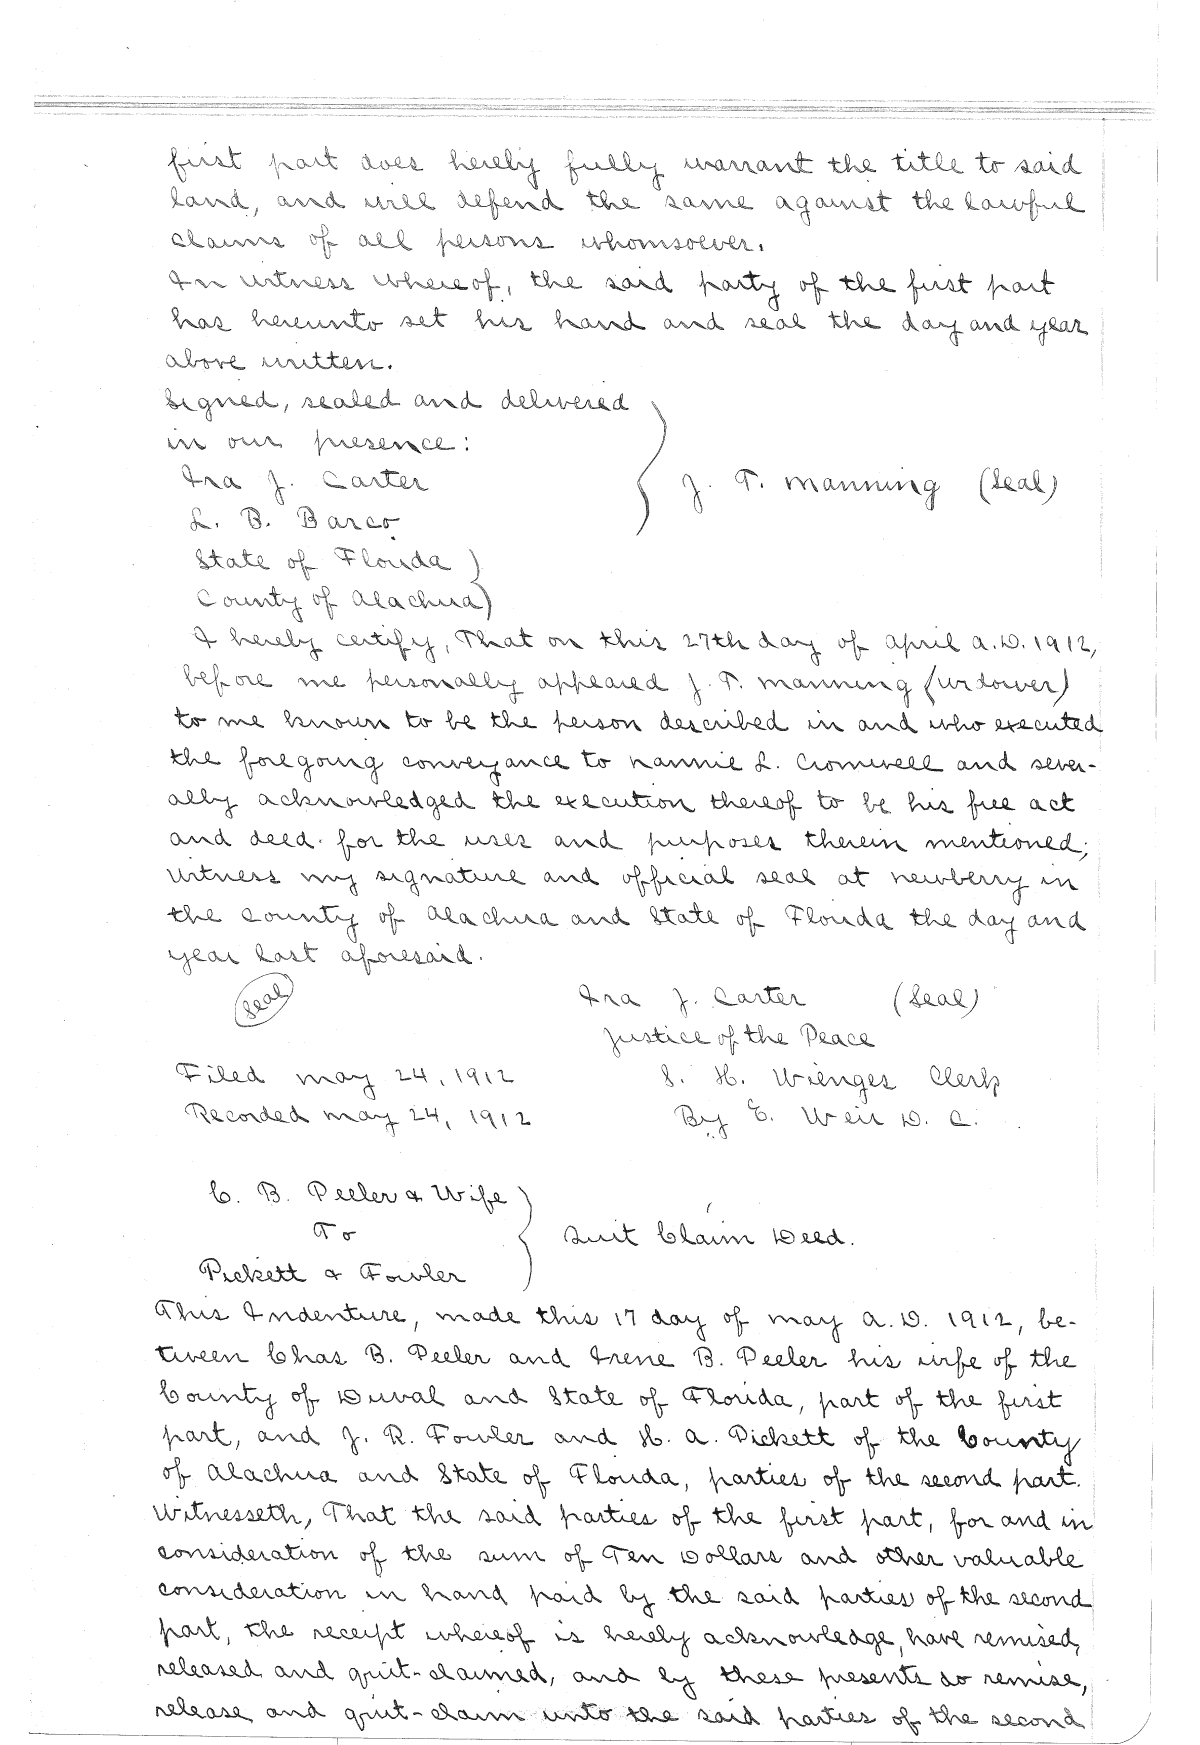 first part does hereby fully warrant the title to said
land, and will defend the same against the lawful
claims of all persons whomsoever.
In witness whereof, the said party of the first part
has hereunto set his hand and seal the day and year
above written.
Signed, sealed and delivered
in our presence:
Ira J. Carter
J. T. Manning (Seal)
L. B. Barco
State of Florida )
County of Alachua)
I hereby certify, That on this 27th day of April A.D. 1912,
before me personally appeared J. T. Manning (widower)
to me known to be the person described in and who executed
the foregoing conveyance to Nannie L. Cromwell and sever-
ally acknowledged the execution thereof to be his free act
and deed. for the uses and purposes therein mentioned;
Witness my signature and official seal at Newberry in
the County of Alachua and State of Florida the day and
year last aforesaid.
Seal
Ira J. Carter (Seal)
Justice of the Peace
Filed May 24, 1912
S. H. Wienges Clerk
Recorded May 24, 1912
By E. Weir D. C.
C. B. Peeler & Wife
To
Quit Claim Deed.
Pickett & Fowler
This Indenture, made this 17 day of May A.D. 1912, be-
tween Chas B. Peeler and Irene B. Peeler his wife of the
County of Duval and State of Florida, part of the first
part, and J. R. Fowler and H. A. Pickett of the County
of Alachua and State of Florida, parties of the second part.
Witnesseth, That the said parties of the first part, for and in
consideration of the sum of Ten Dollars and other valuable
consideration in hand paid by the said parties of the second
part, the receipt whereof is hereby acknowledge, have remised,
released and quit-claimed, and by these presents do remise,
release and quit-claim unto the said parties of the second